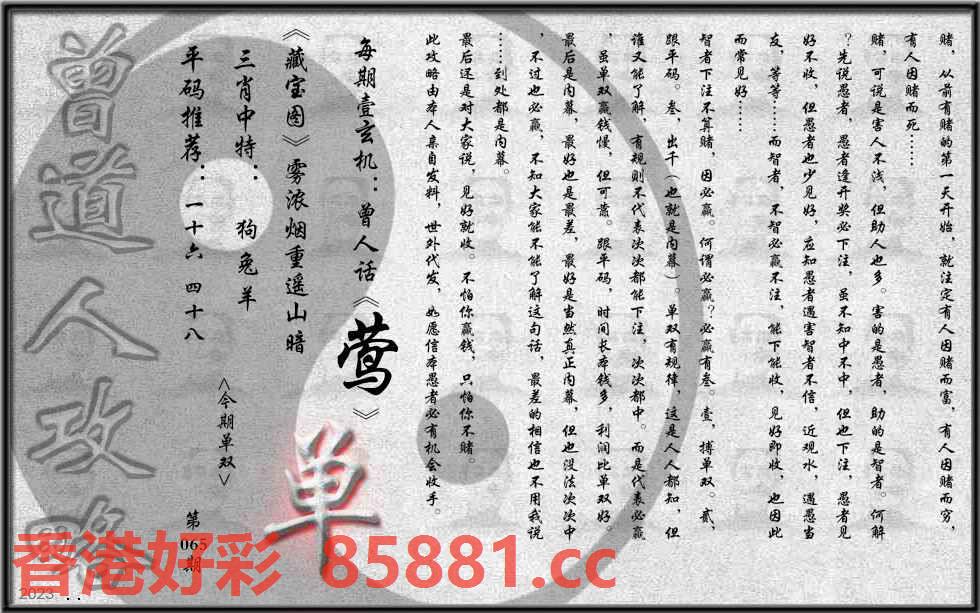 赌，从前有赌的第一天开始，就注定有人因赌而富，有人因赌而穷，
有人因赌而死……
赌，可说是害人不浅，但助人也多。害的是愚者，助的是智者。何解
？先说愚者，愚者逢开奖必下注，虽不知中不中，但也下注，愚者见
好不收，但愚者也少见好，应知愚者遇害智者不信，近观水，遇愚当
友，等等……而智者，不智必赢不注，能下能收，见好即收，也因此
而常见好……
智者下注不算赌，因必赢。何谓必赢？必赢有叁。壹，搏单双。贰，
跟平码。叁，出千（也就是内幕）。单双有规律，这是人人都知，但
谁又能了解，有规则不代表次次都能下注，次次都中。而是代表必赢
，虽单双赢钱慢，但可靠。跟平码，时间长本钱多，利润比单双好。
最后是内幕，最好也是最差，最好是当然真正内幕，但也没法次次中
，不过也必赢，不知大家能不能了解这句话，最差的相信也不用我说
……到处都是内幕。
最后还是对大家说，见好就收。不怕你赢钱，只怕你不赌。
此攻略由本人亲自发料，世外代发，如愿信本愚者必有机会收手。
每期壹玄机：曾人话《莺》
《藏宝图》雾浓烟重遥山暗
三肖中特：狗兔羊
平码推荐：一十六 四十八
<今期单双>
单
第065期
曾道人攻略
香港好彩 85881.cc
2023